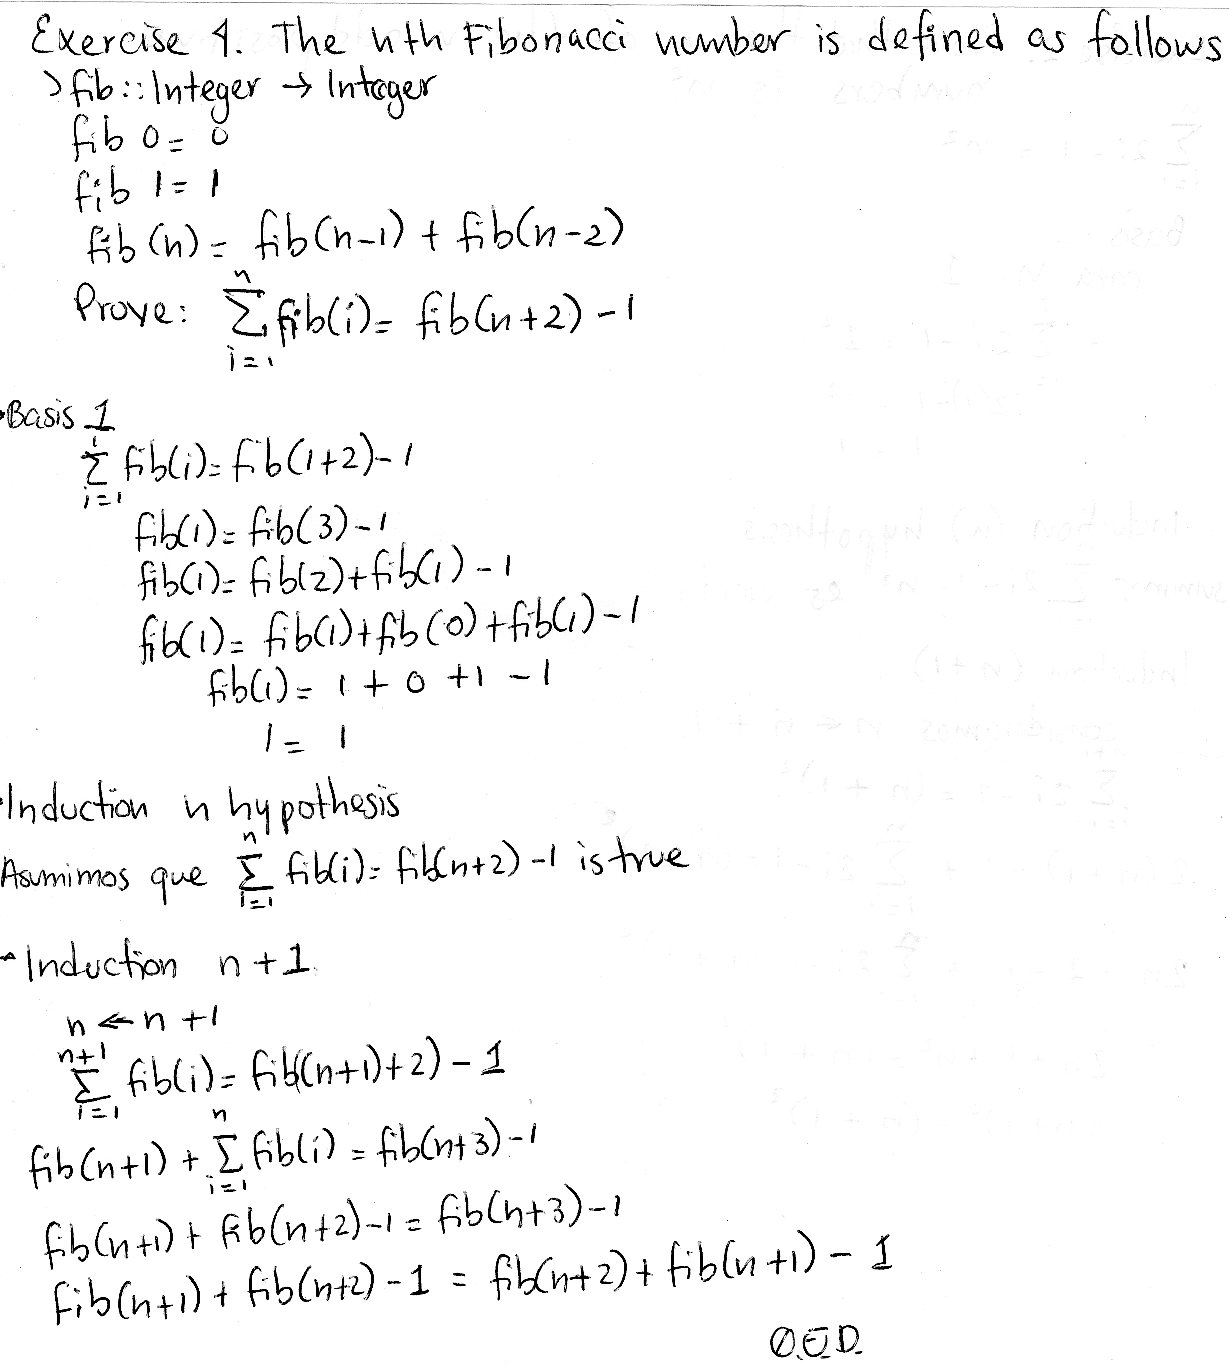 Exercise 4. The nth Fibonacci number is defined as follows
> fib :: Integer → Integer
fib 0 = 0
fib 1 = 1
fib (n) = fib(n-1) + fib(n-2)
Prove: ∑_{i=1}^{n} fib(i) = fib(n+2) - 1
• Basis 1
∑_{i=1}^{1} fib(i) = fib(1+2) - 1
fib(1) = fib(3) - 1
fib(1) = fib(2) + fib(1) - 1
fib(1) = fib(1) + fib(0) + fib(1) - 1
fib(1) = 1 + 0 + 1 - 1
1 = 1
• Induction n hypothesis
Asumimos que ∑_{i=1}^{n} fib(i) = fib(n+2) - 1 is true
• Induction n+1
n ← n+1
∑_{i=1}^{n+1} fib(i) = fib((n+1)+2) - 1
fib(n+1) + ∑_{i=1}^{n} fib(i) = fib(n+3) - 1
fib(n+1) + fib(n+2) - 1 = fib(n+3) - 1
fib(n+1) + fib(n+2) - 1 = fib(n+2) + fib(n+1) - 1
Q.E.D.